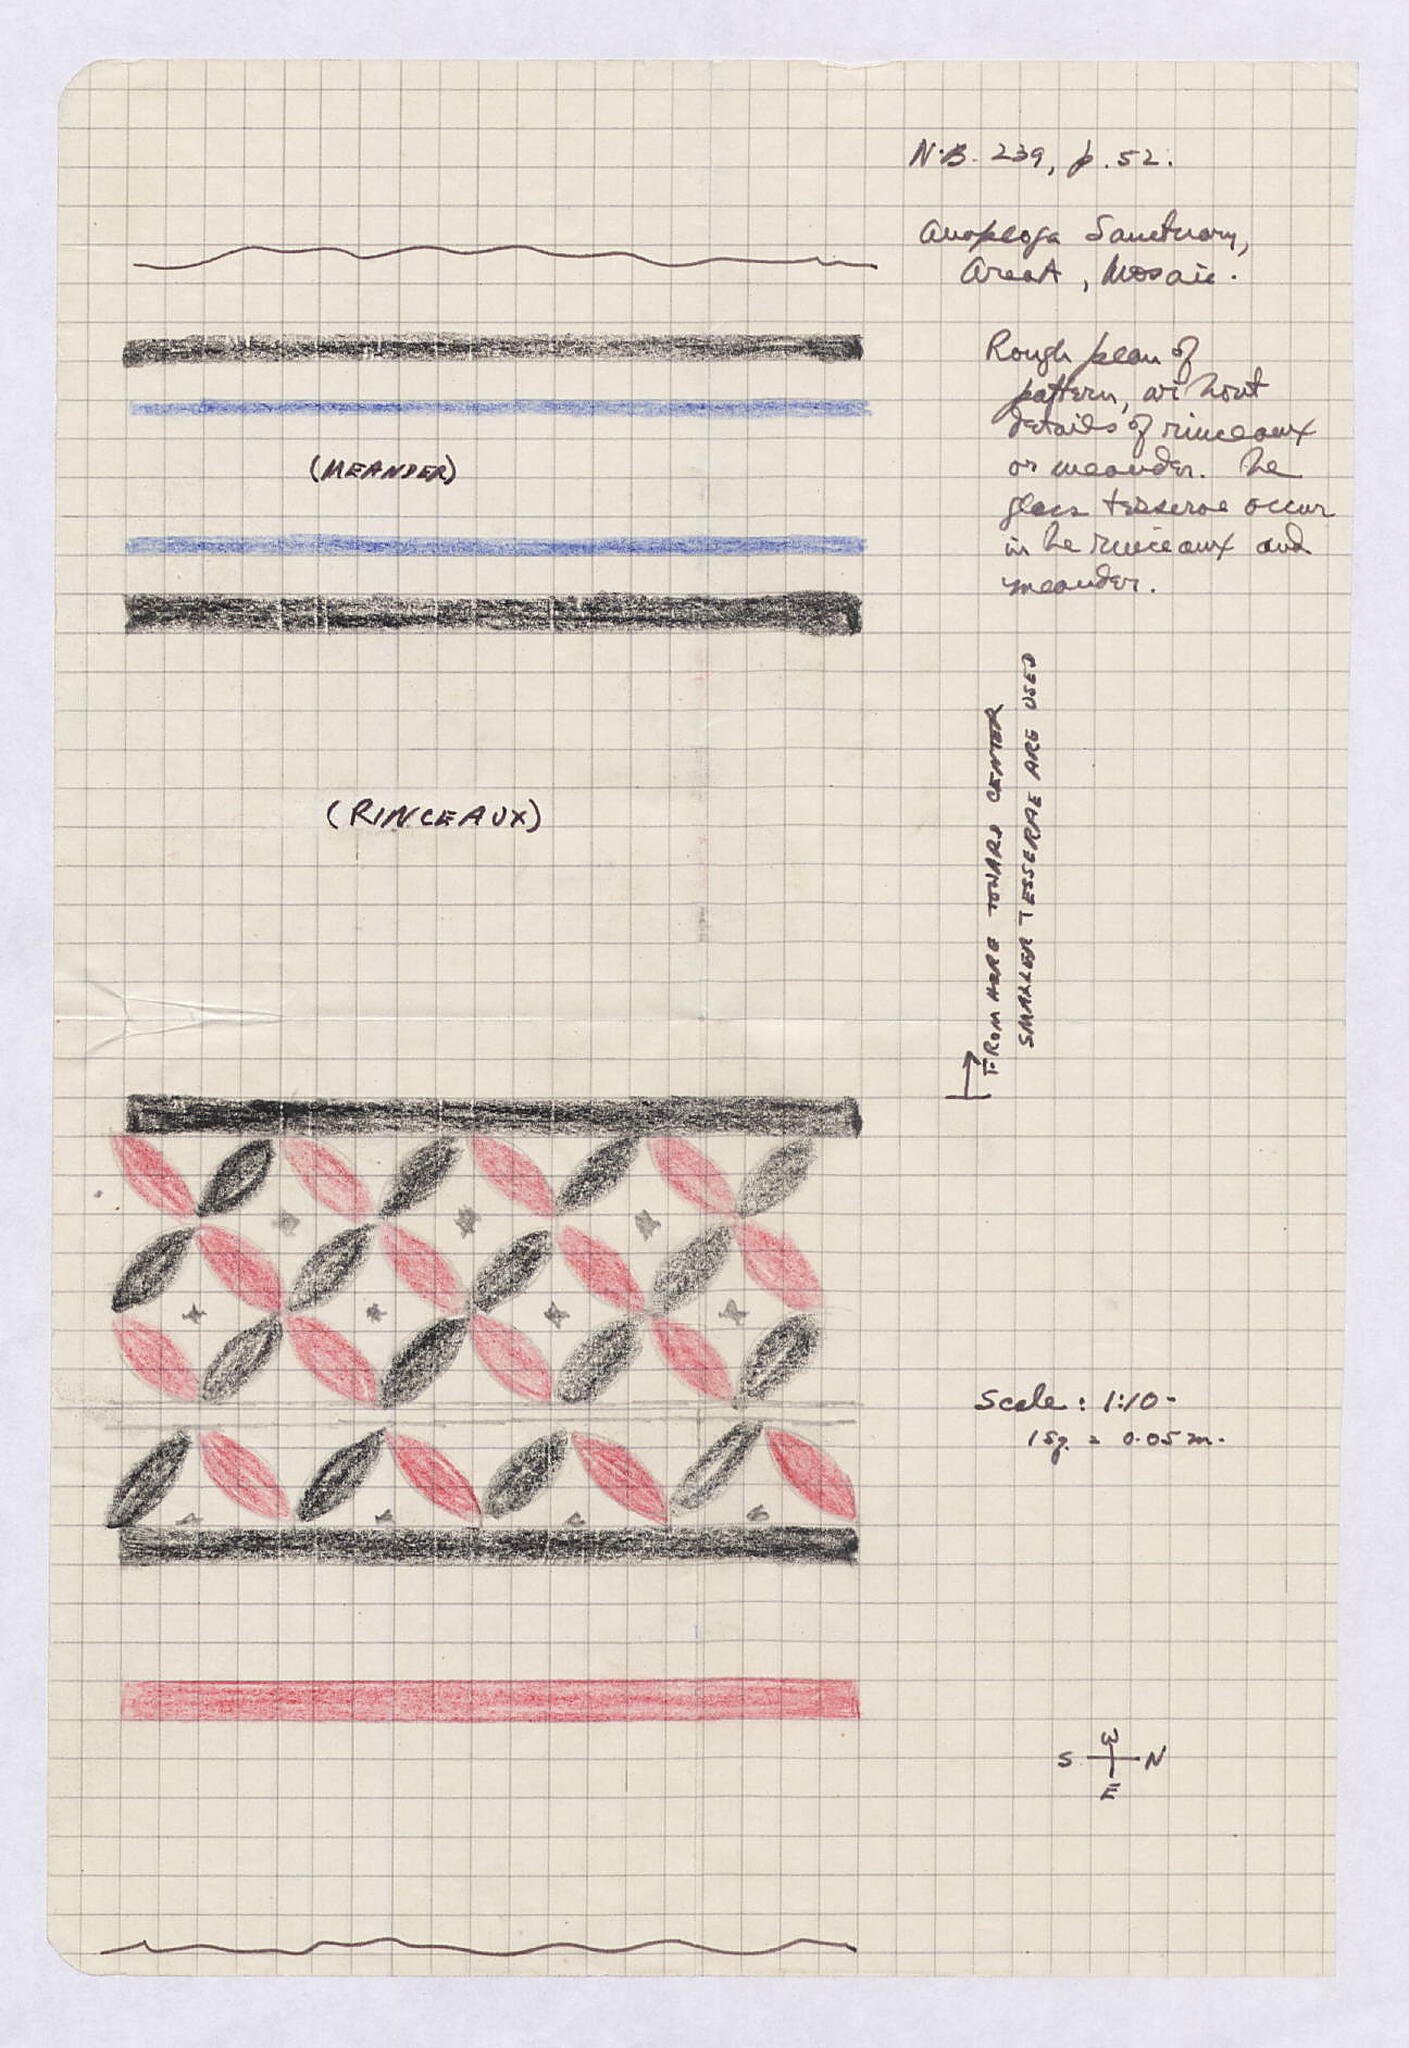 N.B. 239, p. 52.
Anaploga Sanctuary,
Area A, Mosaic.
Rough plan of
pattern, without
details of rinceaux
or meander. The
glass tesserae occur
in the rinceaux and
meander.
(MEANDER)
(RINCEAUX)
FROM HERE TOWARD CENTER
SMALLER TESSERAE ARE USED
Scale: 1:10-
1 sq. = 0.05 m.
W
S N
E